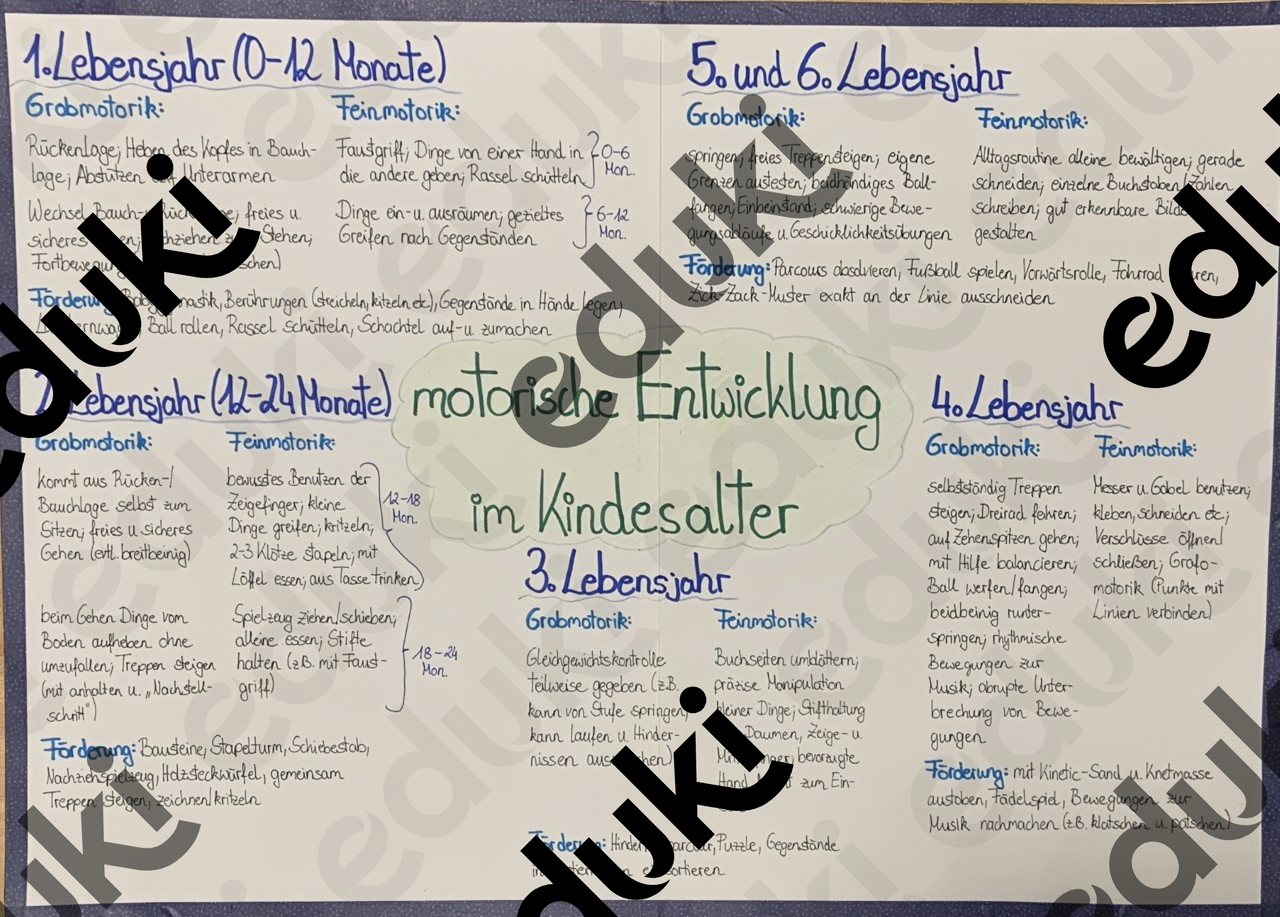 1. Lebensjahr (0-12 Monate)
Grobmotorik:
Rückenlage; Heben des Kopfes in Bauch-
lage; Abstützen Unterarmen
Wechsel Bauch- freies u.
sicheres Stehen;
Fortbewegung
Feinmotorik:
Faustgriff; Dinge von einer Hand in
die andere geben; Rassel schütteln
0-6
Mon.
Dinge ein- u. ausräumen; gezieltes
Greifen nach Gegenständen
6-12
Mon.
Förderung: Berührungen (streicheln, kitzeln etc), Gegenstände in Hände legen,
Ball rollen, Rassel schütteln, Schachtel auf- u zumachen
5. und 6. Lebensjahr
Grobmotorik:
springen; freies Treppensteigen; eigene
Grenzen austesten; beidhändiges Ball-
fangen; Einbeinstand; schwierige Bewe-
gungsabläufe u. Geschicklichkeitsübungen
Feinmotorik:
Alltagsroutine alleine bewältigen; gerade
schneiden; einzelne Buchstaben/Zahlen
schreiben; gut erkennbare
gestalten
Förderung: Parcours absolvieren, Fußball spielen, Vorwärtsrolle, Fahrrad
Zick-Zack-Muster exakt an der Linie ausschneiden
motorische Entwicklung
im Kindesalter
2. Lebensjahr (12-24 Monate)
Grobmotorik:
kommt aus Rücken-/
Bauchlage selbst zum
Sitzen; freies u. sicheres
Gehen (evtl. breitbeinig)
Feinmotorik:
bewusstes Benutzen der
Zeigefinger; kleine
Dinge greifen; kritzeln;
2-3 Klötze stapeln; mit
Löffel essen; aus Tasse trinken
12-18
Mon.
beim Gehen Dinge vom
Boden aufheben ohne
umzufallen; Treppen steigen
(mit anhalten u. „Nachstell-
schritt")
Spielzeug ziehen/schieben;
alleine essen; Stifte
halten (z.B. mit Faust-
griff)
18-24
Mon.
Förderung: Bausteine, Stapelturm, Schiebestab,
Nachziehspielzeug, Holzsteckwürfel, gemeinsam
Treppen steigen, zeichnen/kritzeln
3. Lebensjahr
Grobmotorik:
Gleichgewichtskontrolle
teilweise gegeben (z.B.
kann von Stufe springen,
kann laufen u. Hinder-
nissen
Feinmotorik:
Buchseiten umblättern;
präzise Manipulation
kleiner Dinge; Stifthaltung
Daumen, Zeige- u.
bevorzugte
Hand zum Ein-
Förderung: Puzzle, Gegenstände
4. Lebensjahr
Grobmotorik:
selbstständig Treppen
steigen; Dreirad fahren;
auf Zehenspitzen gehen;
mit Hilfe balancieren;
Ball werfen/fangen;
beidbeinig runter-
springen; rhythmische
Bewegungen zur
Musik; abrupte Unter-
brechung von Bewe-
gungen
Feinmotorik:
Messer u. Gabel benutzen;
kleben, schneiden etc;
Verschlüsse öffnen/
schließen; Grafo-
motorik (Punkte mit
Linien verbinden)
Förderung: mit Kinetic-Sand u. Knetmasse
austoben, Fädelspiel, Bewegungen zur
Musik nachmachen (z.B. klatschen u. patschen)
eduki
eduki
eduki
eduki
eduki
eduki